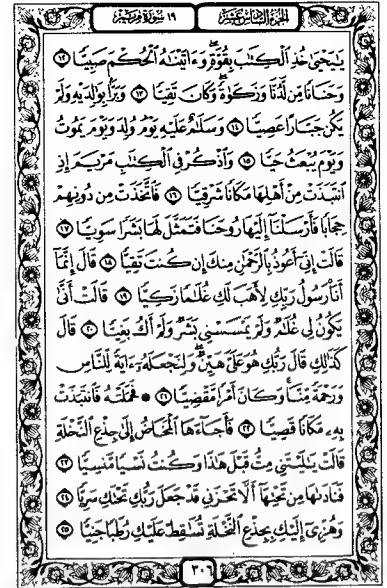 الجزء السادس عشر ١٩ سورة مريم
يَـٰيَحْيَىٰ خُذِ ٱلْكِتَـٰبَ بِقُوَّةٍ ۖ وَءَاتَيْنَـٰهُ ٱلْحُكْمَ صَبِيًّا ١٢
وَحَنَانًا مِّن لَّدُنَّا وَزَكَوٰةً ۖ وَكَانَ تَقِيًّا ١٣ وَبَرًّۢا بِوَٰلِدَيْهِ وَلَمْ
يَكُن جَبَّارًا عَصِيًّا ١٤ وَسَلَـٰمٌ عَلَيْهِ يَوْمَ وُلِدَ وَيَوْمَ يَمُوتُ
وَيَوْمَ يُبْعَثُ حَيًّا ١٥ وَٱذْكُرْ فِى ٱلْكِتَـٰبِ مَرْيَمَ إِذِ
ٱنتَبَذَتْ مِنْ أَهْلِهَا مَكَانًا شَرْقِيًّا ١٦ فَٱتَّخَذَتْ مِن دُونِهِمْ
حِجَابًا فَأَرْسَلْنَآ إِلَيْهَا رُوحَنَا فَتَمَثَّلَ لَهَا بَشَرًا سَوِيًّا ١٧
قَالَتْ إِنِّىٓ أَعُوذُ بِٱلرَّحْمَـٰنِ مِنكَ إِن كُنتَ تَقِيًّا ١٨ قَالَ إِنَّمَآ
أَنَا۠ رَسُولُ رَبِّكِ لِأَهَبَ لَكِ غُلَـٰمًا زَكِيًّا ١٩ قَالَتْ أَنَّىٰ
يَكُونُ لِى غُلَـٰمٌ وَلَمْ يَمْسَسْنِى بَشَرٌ وَلَمْ أَكُ بَغِيًّا ٢٠ قَالَ
كَذَٰلِكِ قَالَ رَبُّكِ هُوَ عَلَىَّ هَيِّنٌ ۖ وَلِنَجْعَلَهُۥٓ ءَايَةً لِّلنَّاسِ
وَرَحْمَةً مِّنَّا ۚ وَكَانَ أَمْرًا مَّقْضِيًّا ٢١ ۞ فَحَمَلَتْهُ فَٱنتَبَذَتْ
بِهِۦ مَكَانًا قَصِيًّا ٢٢ فَأَجَآءَهَا ٱلْمَخَاضُ إِلَىٰ جِذْعِ ٱلنَّخْلَةِ
قَالَتْ يَـٰلَيْتَنِى مِتُّ قَبْلَ هَـٰذَا وَكُنتُ نَسْيًا مَّنسِيًّا ٢٣
فَنَادَىٰهَا مِن تَحْتِهَآ أَلَّا تَحْزَنِى قَدْ جَعَلَ رَبُّكِ تَحْتَكِ سَرِيًّا ٢٤
وَهُزِّىٓ إِلَيْكِ بِجِذْعِ ٱلنَّخْلَةِ تُسَـٰقِطْ عَلَيْكِ رُطَبًا جَنِيًّا ٢٥
٣٠٦